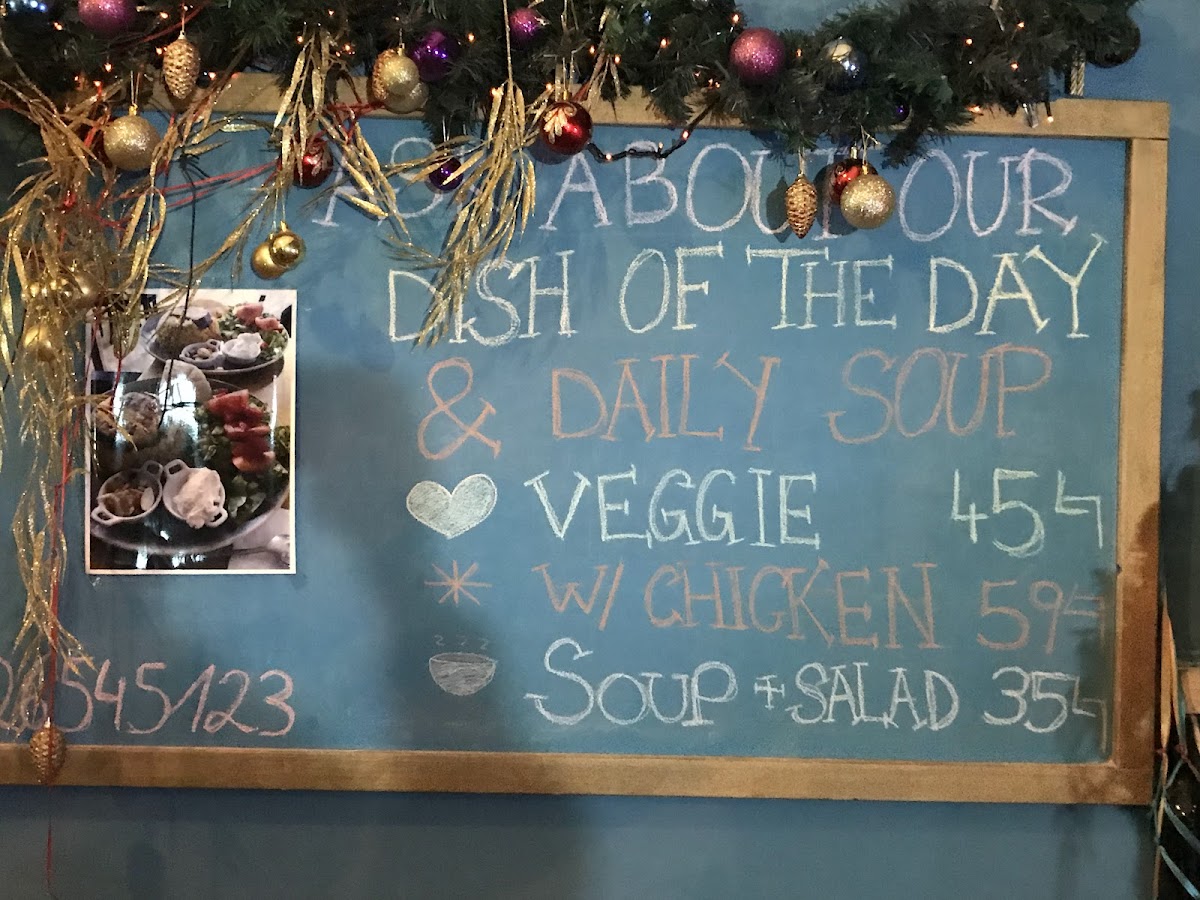 ASK ABOUT OUR
DISH OF THE DAY
& DAILY SOUP
VEGGIE 45
W/ CHICKEN 59
SOUP + SALAD 35
545123